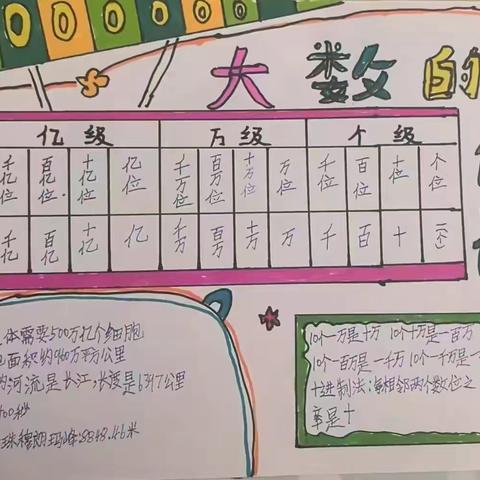 大数的
亿级 万级 个级
千亿位 百亿位 十亿位 亿位 千万位 百万位 十万位 万位 千位 百位 十位 个位
千亿 百亿 十亿 亿 千万 百万 十万 万 千 百 十 一(个)
体需要500万亿个细胞
面积约960万平方公里
的河流是长江,长度是6397公里
400秒
珠穆朗玛峰:8848.46米
10个一万是十万 10个十万是一百万
10个一百万是一千万 10个一千万是一
十进制法:每相邻两个数位之
率是十